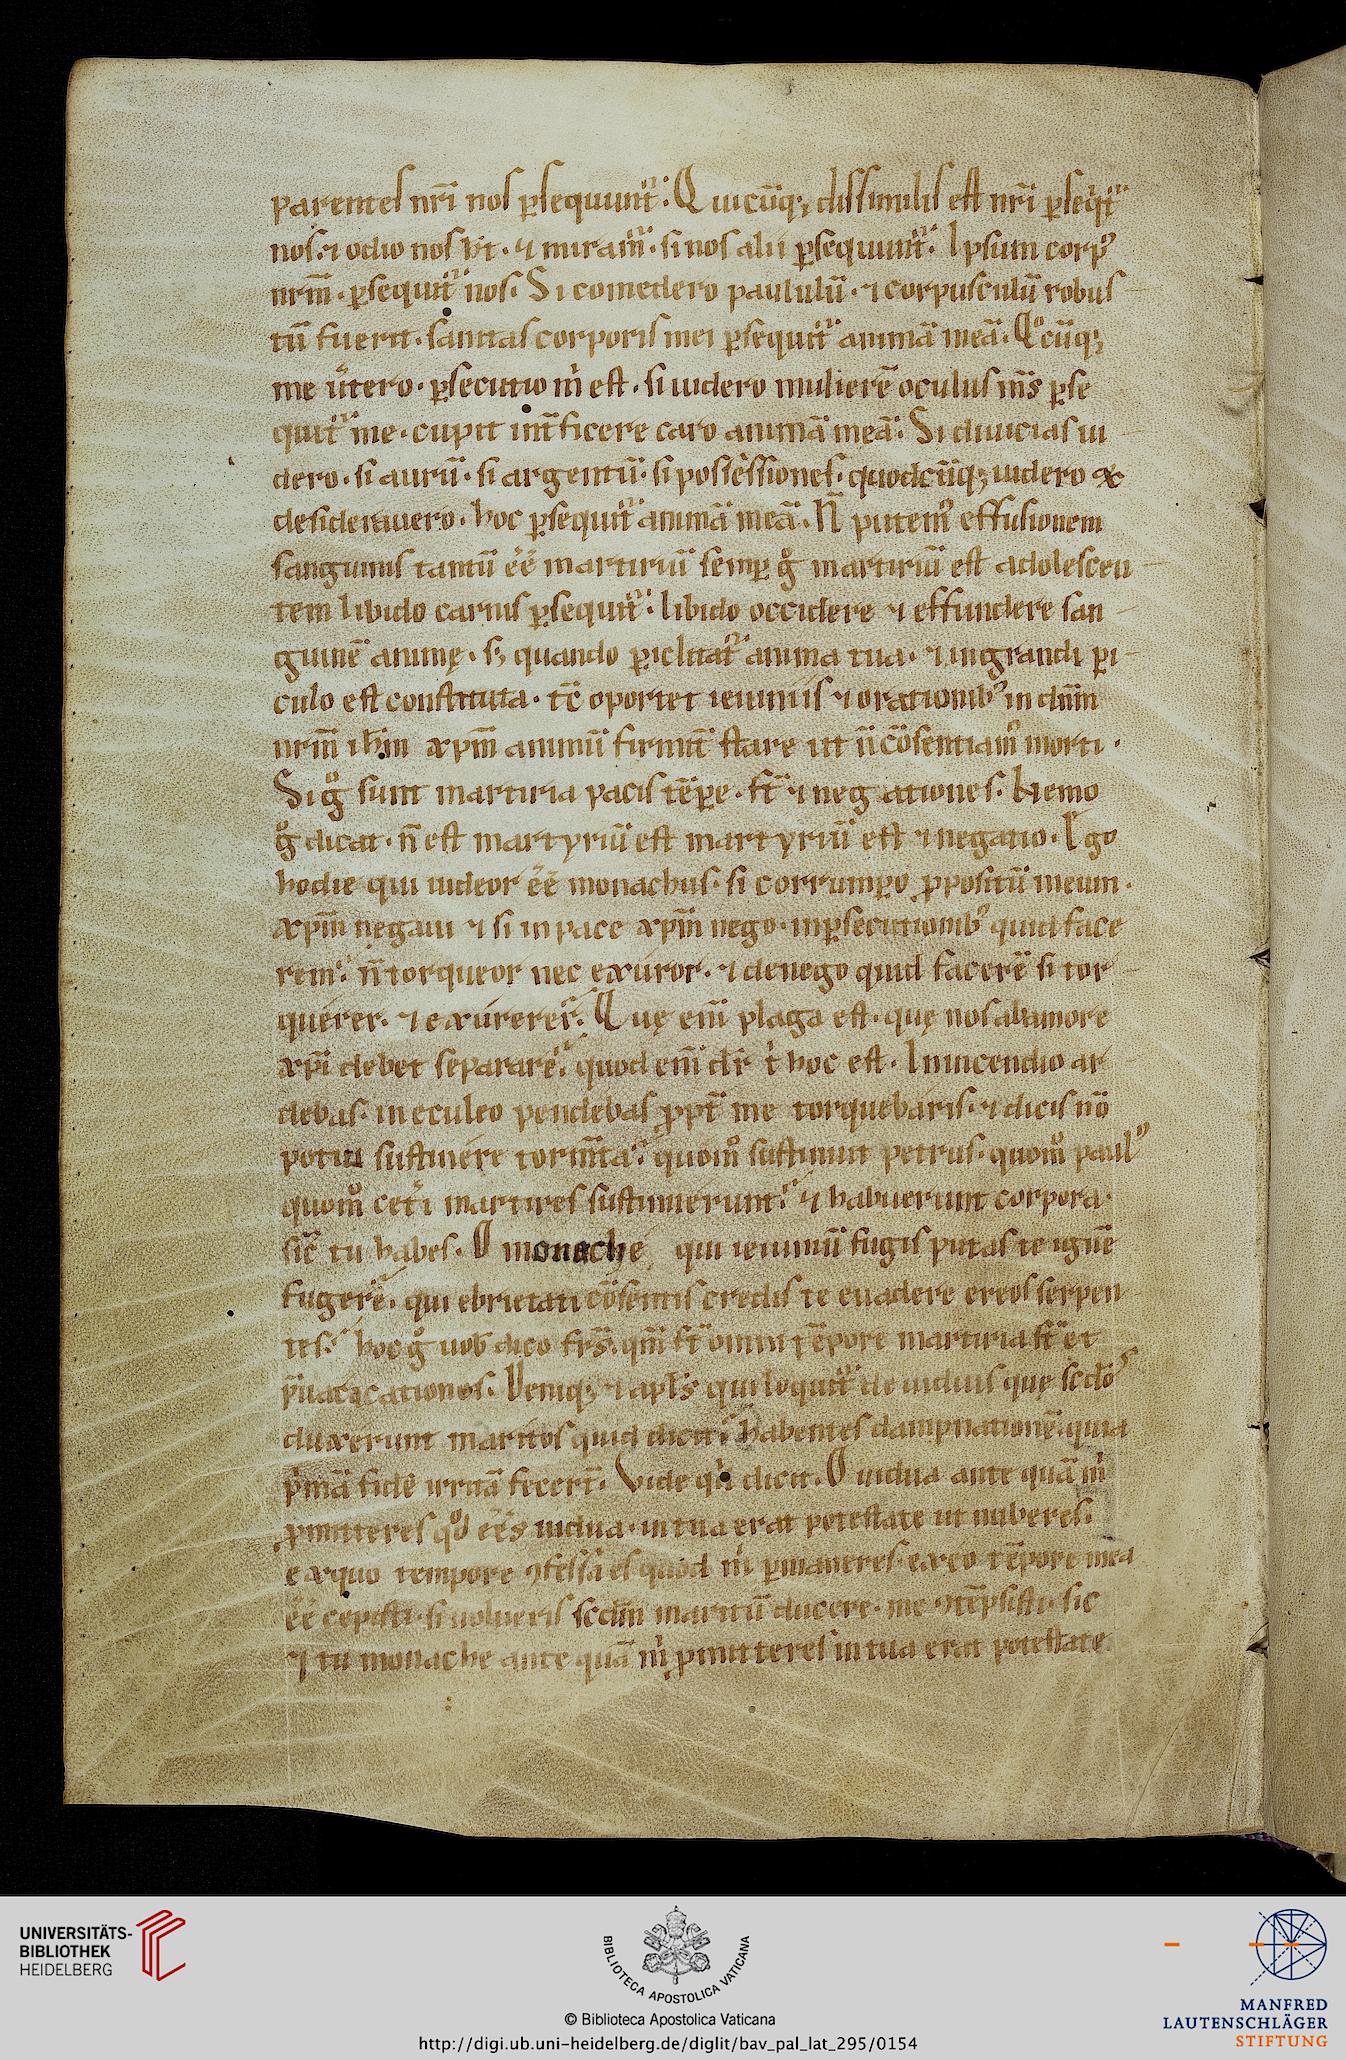 parentes nr̄i nos ꝑsequunt᷑. Quicūq; dissimilis est nr̄i ꝑseqit᷑
nos. ⁊ odio nos h̄t. ⁊ miram᷑. si nos alii ꝑsequunt᷑. Ipsum corpꝰ
nrm̄. ꝑsequit᷑ nos. Si comedero paululū. ⁊ corpusculū robus
tū fuerit. sanitas corporis mei ꝑsequit᷑ animā meā. Qͦcūq;
me u̓tero. ꝑsecutio m̓ est. si uidero mulierē oculus ms̄ ꝑse
quit᷑ me. cupit int̄ficere caro animā meā. Si diuicias ui
dero. si aurū. si argentū. si possessiones. quodcūq; uidero &
desiderauero. hoc ꝑsequit᷑ animā meā. N̄ putemꝰ effusionem
sanguinis tantū ēē martiriū semꝑ gͦ martiriū est adolescen
tem libido carnis ꝑsequit᷑. libido occidere ⁊ effundere san
guinē animę. s; quando ꝑiclitat᷑ anima tua. ⁊ ingrandi ꝑi
culo est constituta. tc̄ oportet ieiuniis ⁊ orationibꝰ in dnm̄
nrm̄ ih̄m xpm̄ animū firmit̄ stare ut n̄ cōsentiamꝰ morti.
Si gͦ sunt martiria pacis tēꝑe. st̄ ⁊ negationes. Nemo
gͦ dicat. n̄ est martyriū est martyriū est ⁊ negatio. Ego
hodie qui uideor ēē monachus. si corrumpo ꝓpositū meum.
xpm̄ negaui ⁊ si in pace xpm̄ nego. inꝑsecutionibꝰ quid face
rem. n̄ torqueor nec exuror. ⁊ denego quid facerē si tor
querer. ⁊ exurerer. Quę eni᷑ plaga est. quę nos abamore
xp̄i debet separare. quod eni᷑ dr̄ t̓ hoc est. Inincendio ar
debas. in eculeo pendebas ꝓpt̄ me torquebaris. ⁊ dicis nō
potui sustinere torm̄ta. quomͦ sustinuit petrus. quomͦ paulꝰ
quomͦ cet̓i martires sustinuerunt. ⁊ habuerunt corpora.
sic̄ tu habes. O monache qui ieiuniū fugis putas te ignē
fugere. qui ebrietati cōsentis credis te euadere ereos serpen
tes. hoc gͦ uob̄ dico frs̄. qm̄ st̄ omni tēpore martiria st̄ et
p̓uaricationes. Deniq; ⁊ apl̄s qui loquit᷑ de uiduis quę scdōs
duxerunt maritos quid dicit. habentes dampnationē. quia
p̓mā fidē irritā fecert̄. Vide qd̓ dicit. O uidua ante quā m̓
ꝓmitteres qͦd ēēs uidua. in tua erat potestate ut nuberes.
exquo tempore ꝯfessa es quod m̓ ꝑmaneres. exeo tēpore mea
ēē cepisti. si uolueris scdm̄ maritū ducere. me ꝯtēpsisti. sic
⁊ tu monache ante quā m̓ ꝓmitteres in tua erat potestate
UNIVERSITÄTS-
BIBLIOTHEK
HEIDELBERG
BIBLIOTECA APOSTOLICA VATICANA
© Biblioteca Apostolica Vaticana
http://digi.ub.uni-heidelberg.de/diglit/bav_pal_lat_295/0154
MANFRED
LAUTENSCHLÄGER
STIFTUNG